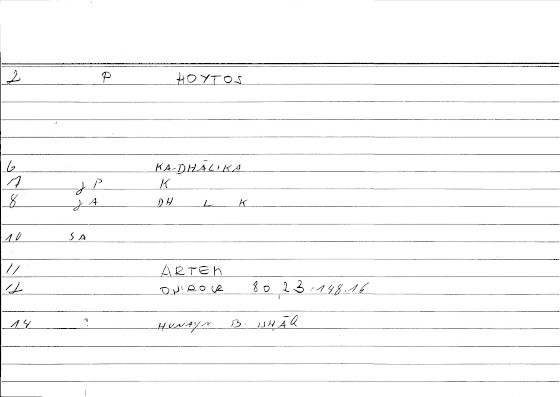 2 P HOYTOS
6 KA-DHĀLIKA
7 j P K
8 j A DH L K
10 SA
11 ARTEM
12 80,23.148.16
14 ? HUNAYN B ISHĀQ